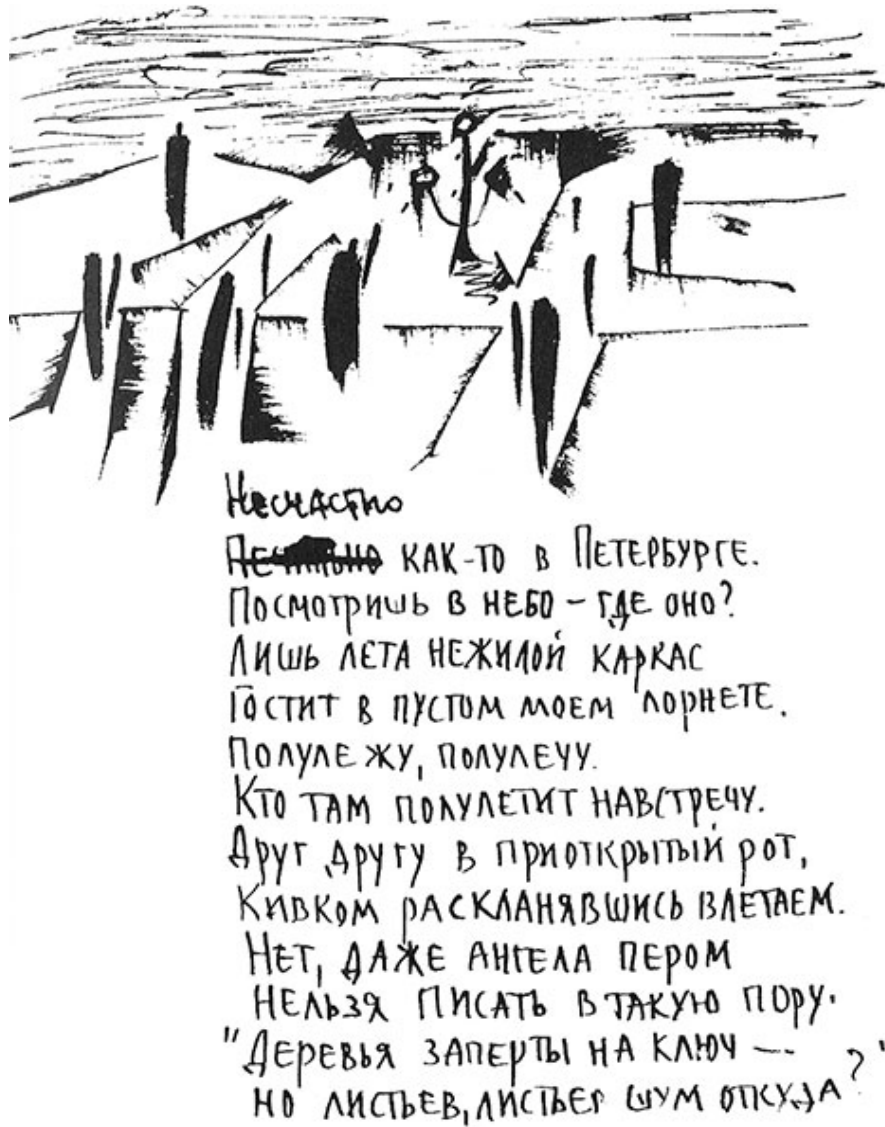 Несчастно
Печально как-то в Петербурге.
Посмотришь в небо – где оно?
Лишь лета нежилой каркас
Гостит в пустом моем лорнете.
Полулежу, полулечу.
Кто там полулетит навстречу.
Друг другу в приоткрытый рот,
Кивком раскланявшись влетаем.
Нет, даже ангела пером
Нельзя писать в такую пору.
"Деревья заперты на ключ –
но листьев, листьев шум откуда?"